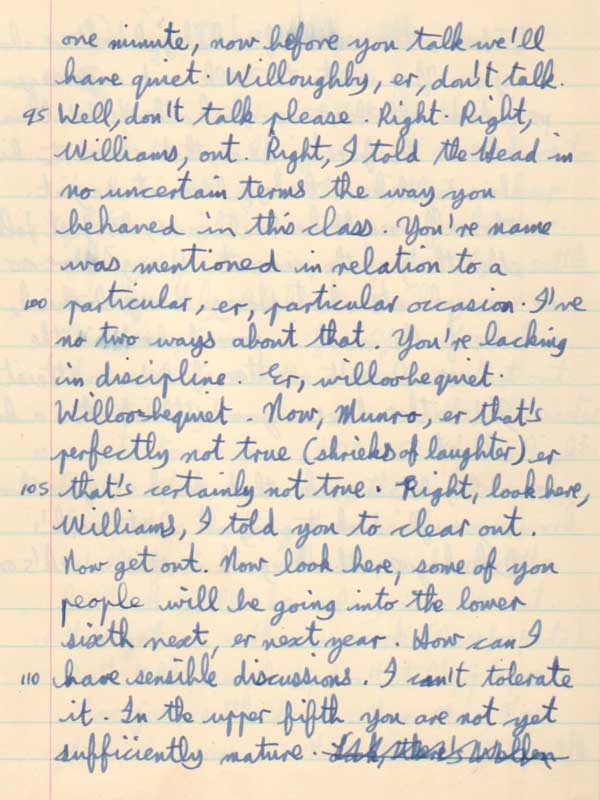 one minute, now before you talk we'll
have quiet. Willoughby, er, don't talk.
95 Well, don't talk please. Right. Right,
Williams, out. Right, I told the Head in
no uncertain terms the way you
behaved in this class. You're name
was mentioned in relation to a
100 particular, er, particular occasion. I've
no two ways about that. You're lacking
in discipline. Er, willoorbequiet.
Willoo-bequiet. Now, Munro, er that's
perfectly not true (shrieks of laughter) er
105 that's certainly not true. Right, look here,
Williams, I told you to clear out.
Now get out. Now look here, some of you
people will be going into the lower
sixth next, er next year. How can I
110 have sensible discussions. I can't tolerate
it. In the upper fifth you are not yet
sufficiently mature.